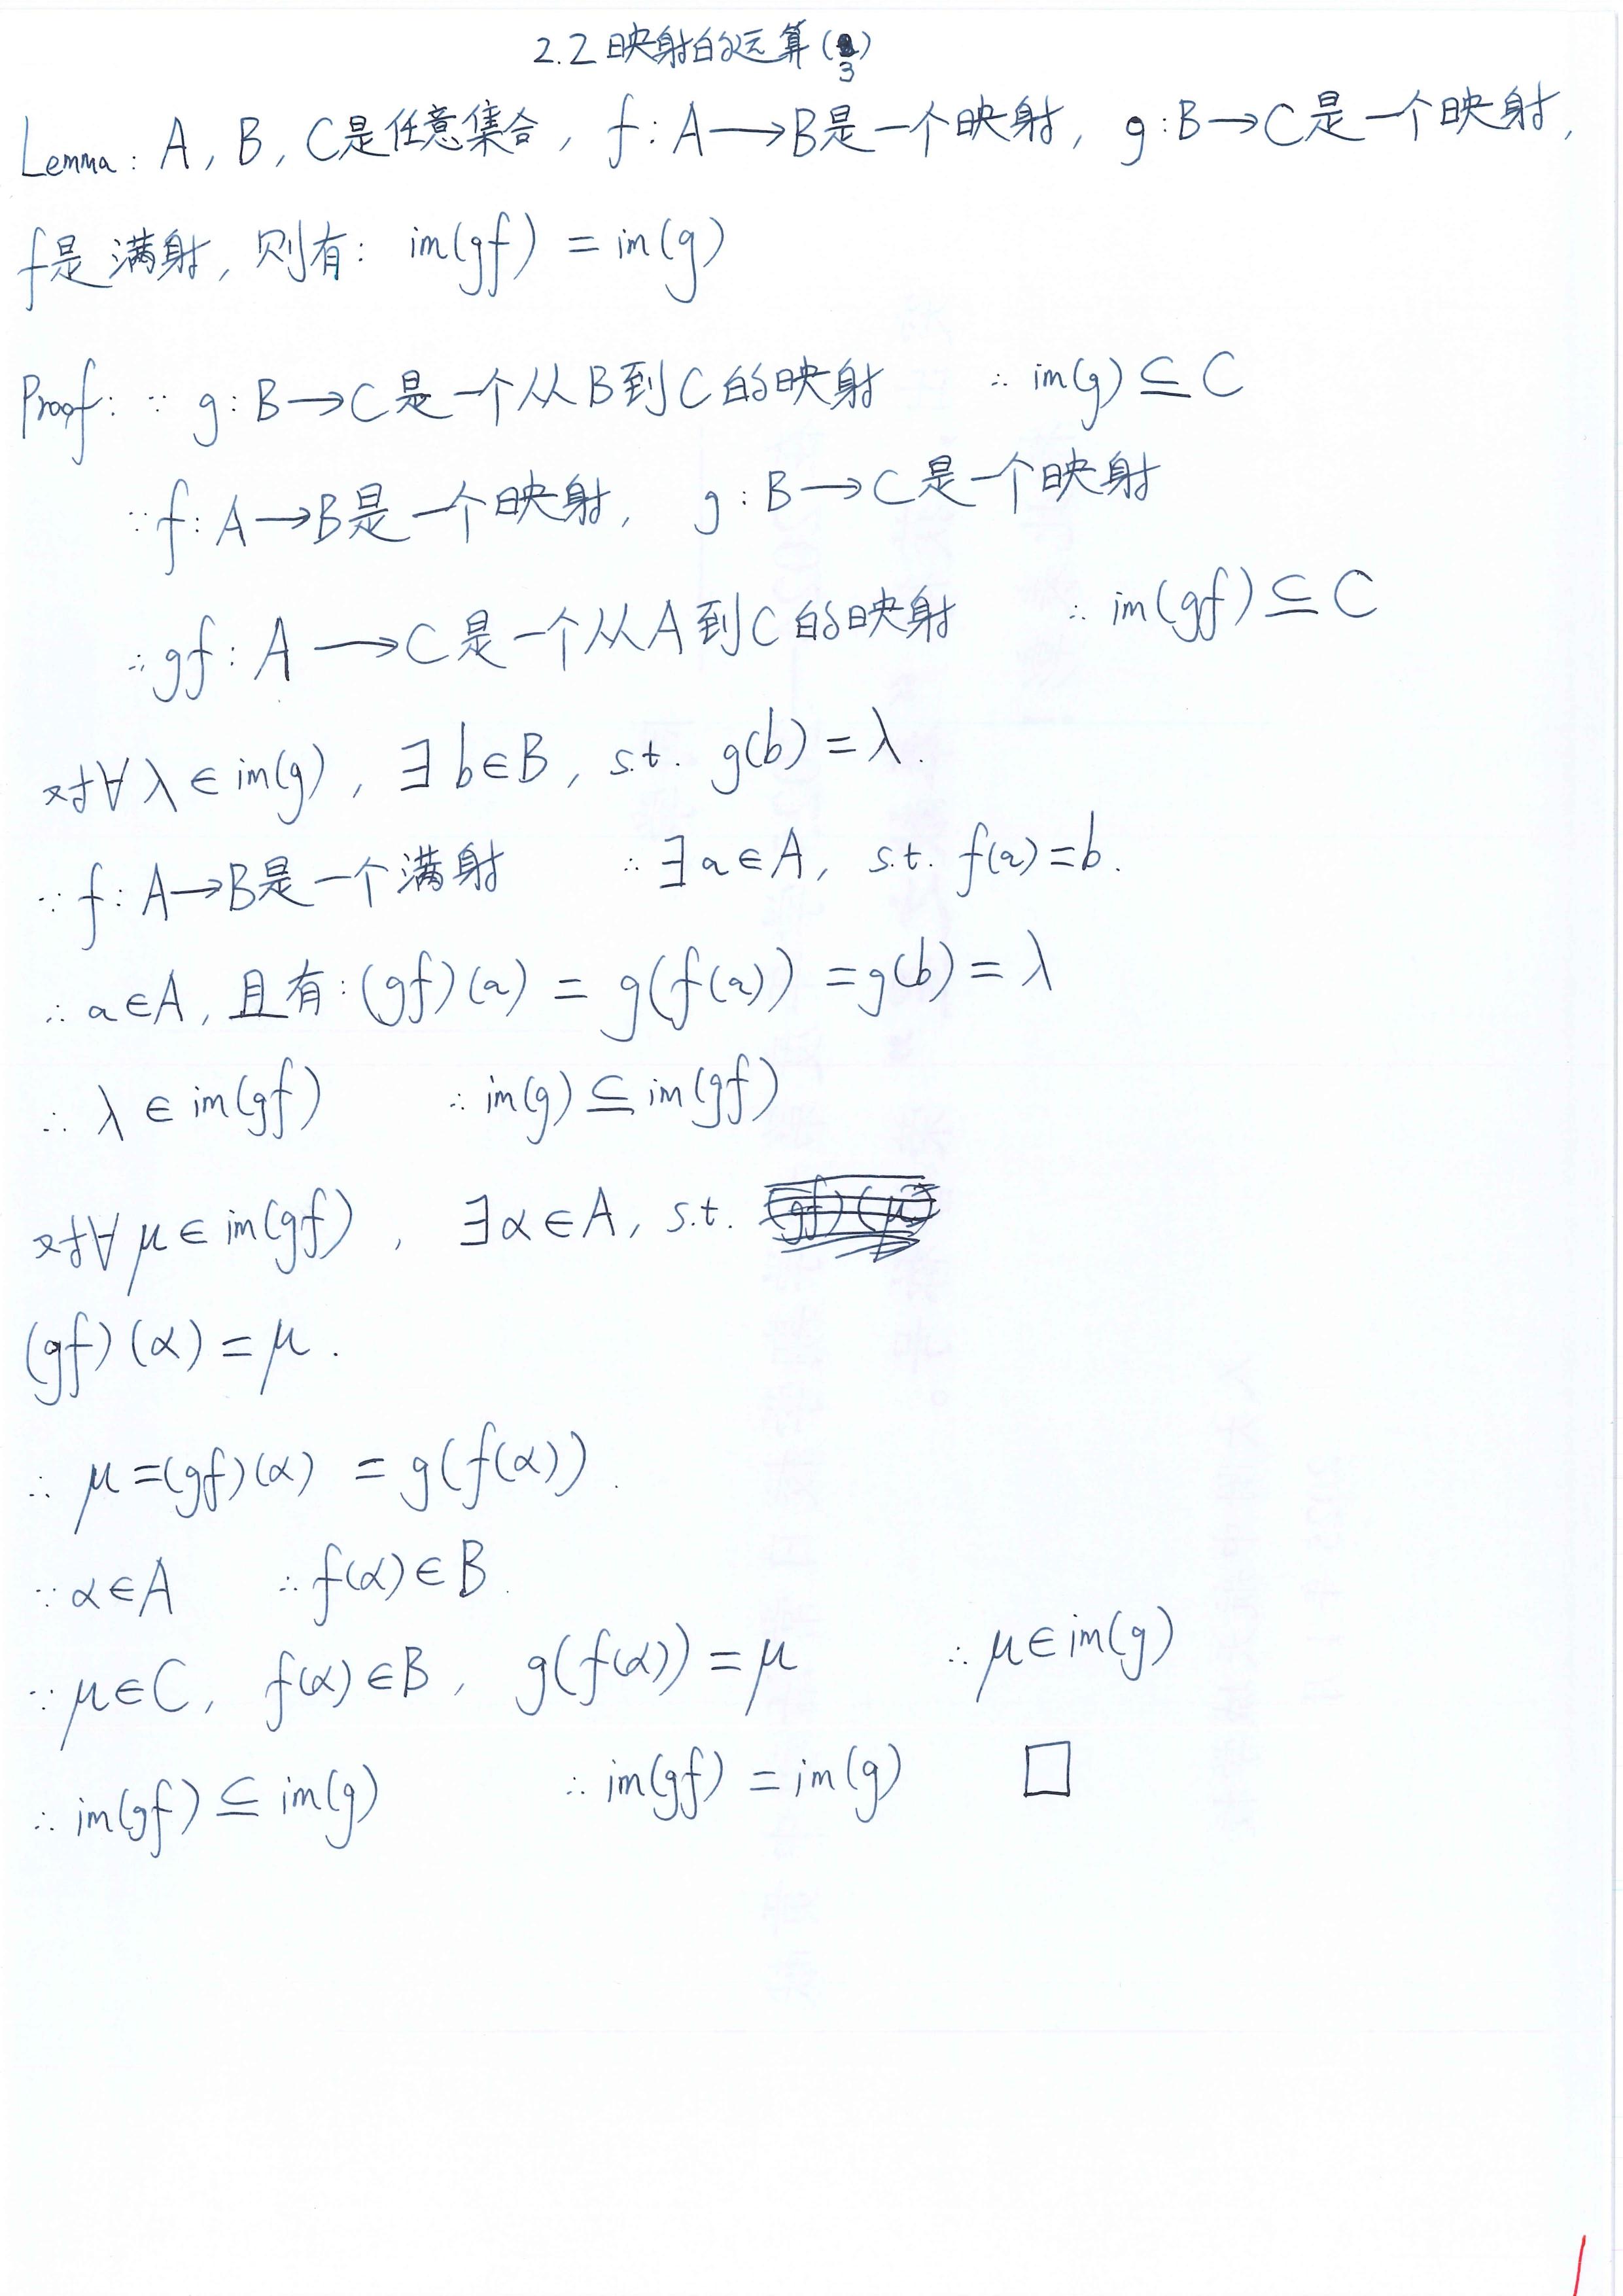 2.2 映射的运算(3)
Lemma: A, B, C是任意集合, f: A⟶B是一个映射, g: B→C是一个映射,
f是满射, 则有: im(gf) = im(g)
Proof: ∵ g: B→C是一个从B到C的映射 ∴ im(g) ⊆ C
∵ f: A→B是一个映射, g: B→C是一个映射
∴ gf: A ⟶C是一个从A到C的映射 ∴ im(gf) ⊆ C
对∀ λ ∈ im(g), ∃ b∈B, s.t. g(b) = λ.
∵ f: A→B是一个满射 ∴ ∃ a∈A, s.t. f(a)=b.
∴ a∈A, 且有: (gf)(a) = g(f(a)) = g(b) = λ
∴ λ ∈ im(gf) ∴ im(g) ⊆ im(gf)
对∀ μ ∈ im(gf), ∃ α ∈ A, s.t.
(gf)(α) = μ.
∴ μ = (gf)(α) = g(f(α)).
∵ α∈A ∴ f(α)∈B.
∵ μ∈C, f(α)∈B, g(f(α)) = μ ∴ μ∈im(g)
∴ im(gf) ⊆ im(g) ∴ im(gf) = im(g) □